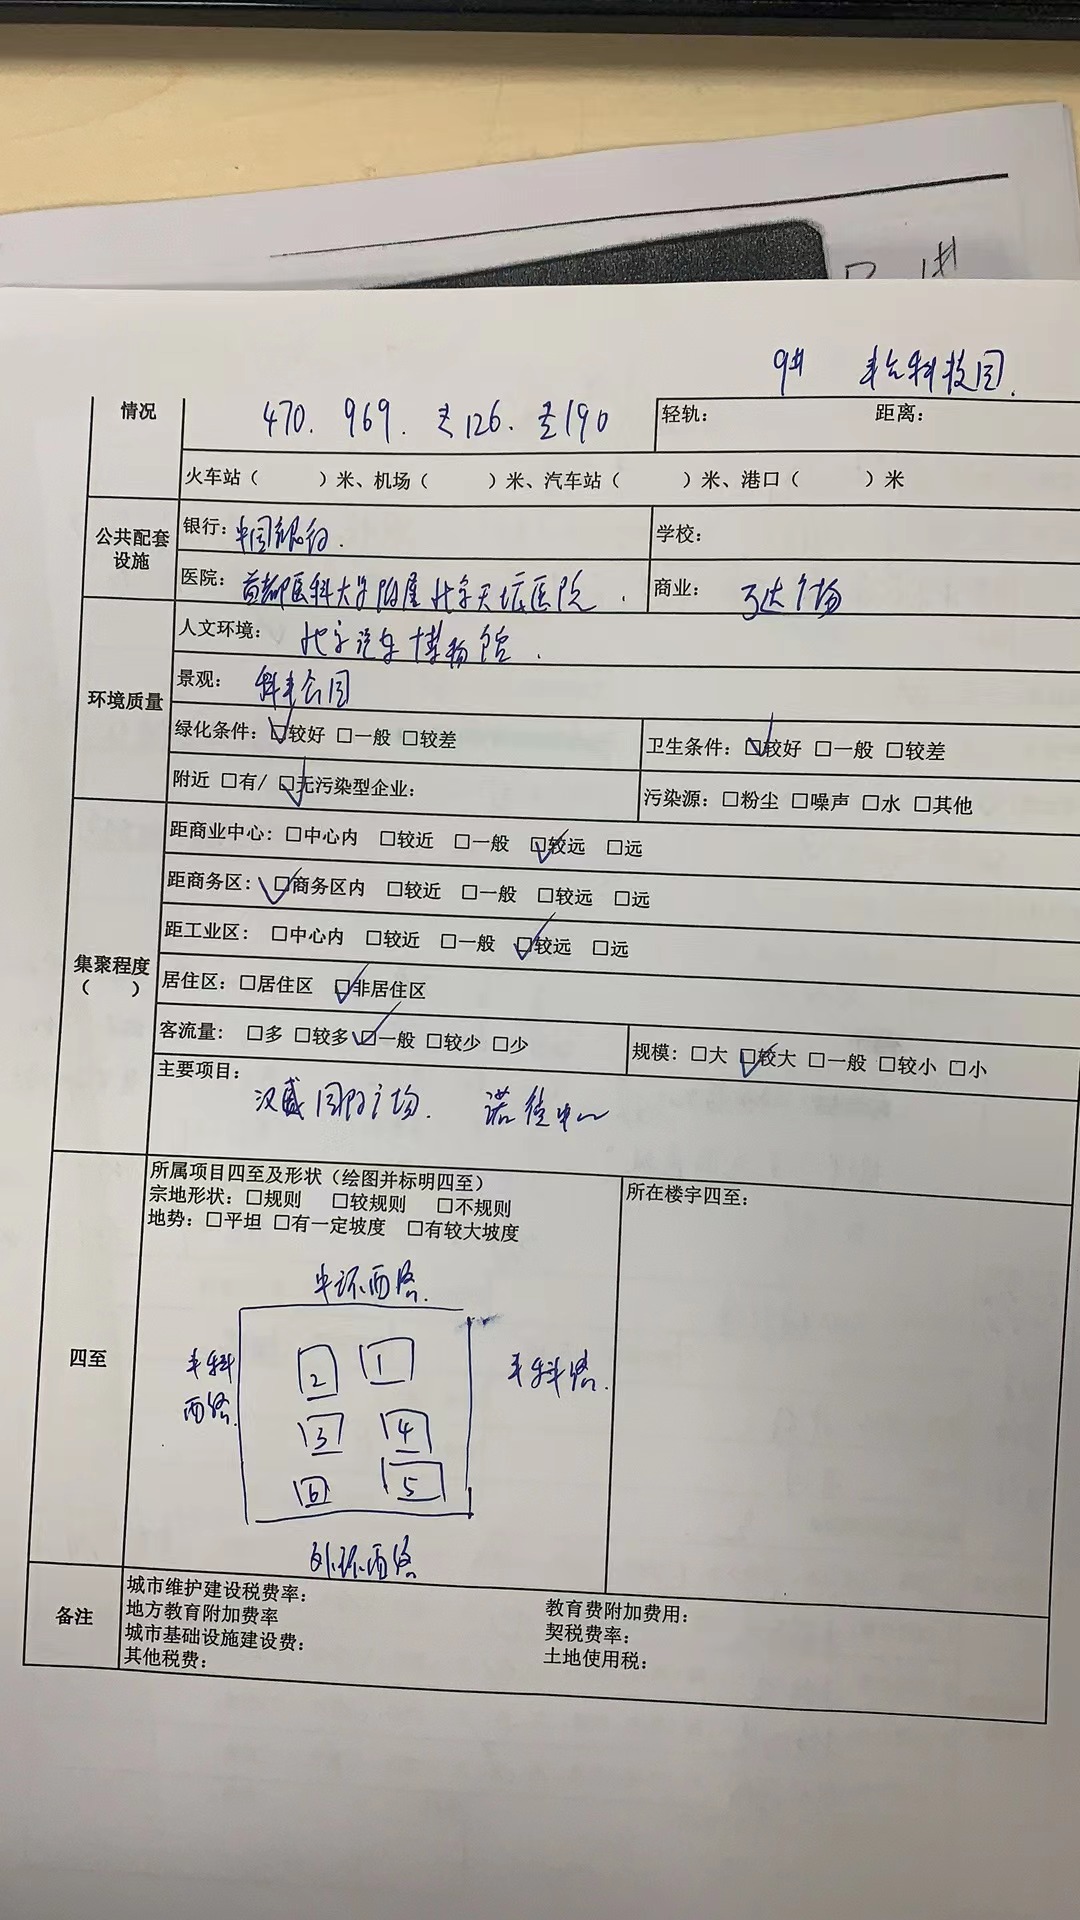 9# 丰台科技园.
情况 470. 969. 专126. 专190 轻轨: 距离:
火车站( )米、机场( )米、汽车站( )米、港口( )米
公共配套设施 银行: 中国银行. 学校:
医院: 首都医科大学附属北京天坛医院. 商业: 万达广场
环境质量 人文环境: 北京汽车博物馆.
景观: 科丰公园
绿化条件: ☑较好 □一般 □较差 卫生条件: ☑较好 □一般 □较差
附近 □有/ ☑无污染型企业: 污染源: □粉尘 □噪声 □水 □其他
集聚程度( ) 距商业中心: □中心内 □较近 □一般 ☑较远 □远
距商务区: ☑商务区内 □较近 □一般 □较远 □远
距工业区: □中心内 □较近 □一般 ☑较远 □远
居住区: □居住区 ☑非居住区
客流量: □多 □较多 ☑一般 □较少 □少 规模: □大 ☑较大 □一般 □较小 □小
主要项目:
汉威国际广场. 诺德中心
四至 所属项目四至及形状(绘图并标明四至) 所在楼宇四至:
宗地形状: □规则 □较规则 □不规则
地势: □平坦 □有一定坡度 □有较大坡度
中环西路.
丰科西路. 2 1 丰科路.
3 4
6 5
外环西路
备注 城市维护建设税费率: 教育费附加费用:
地方教育附加费率 契税费率:
城市基础设施建设费: 土地使用税:
其他税费: